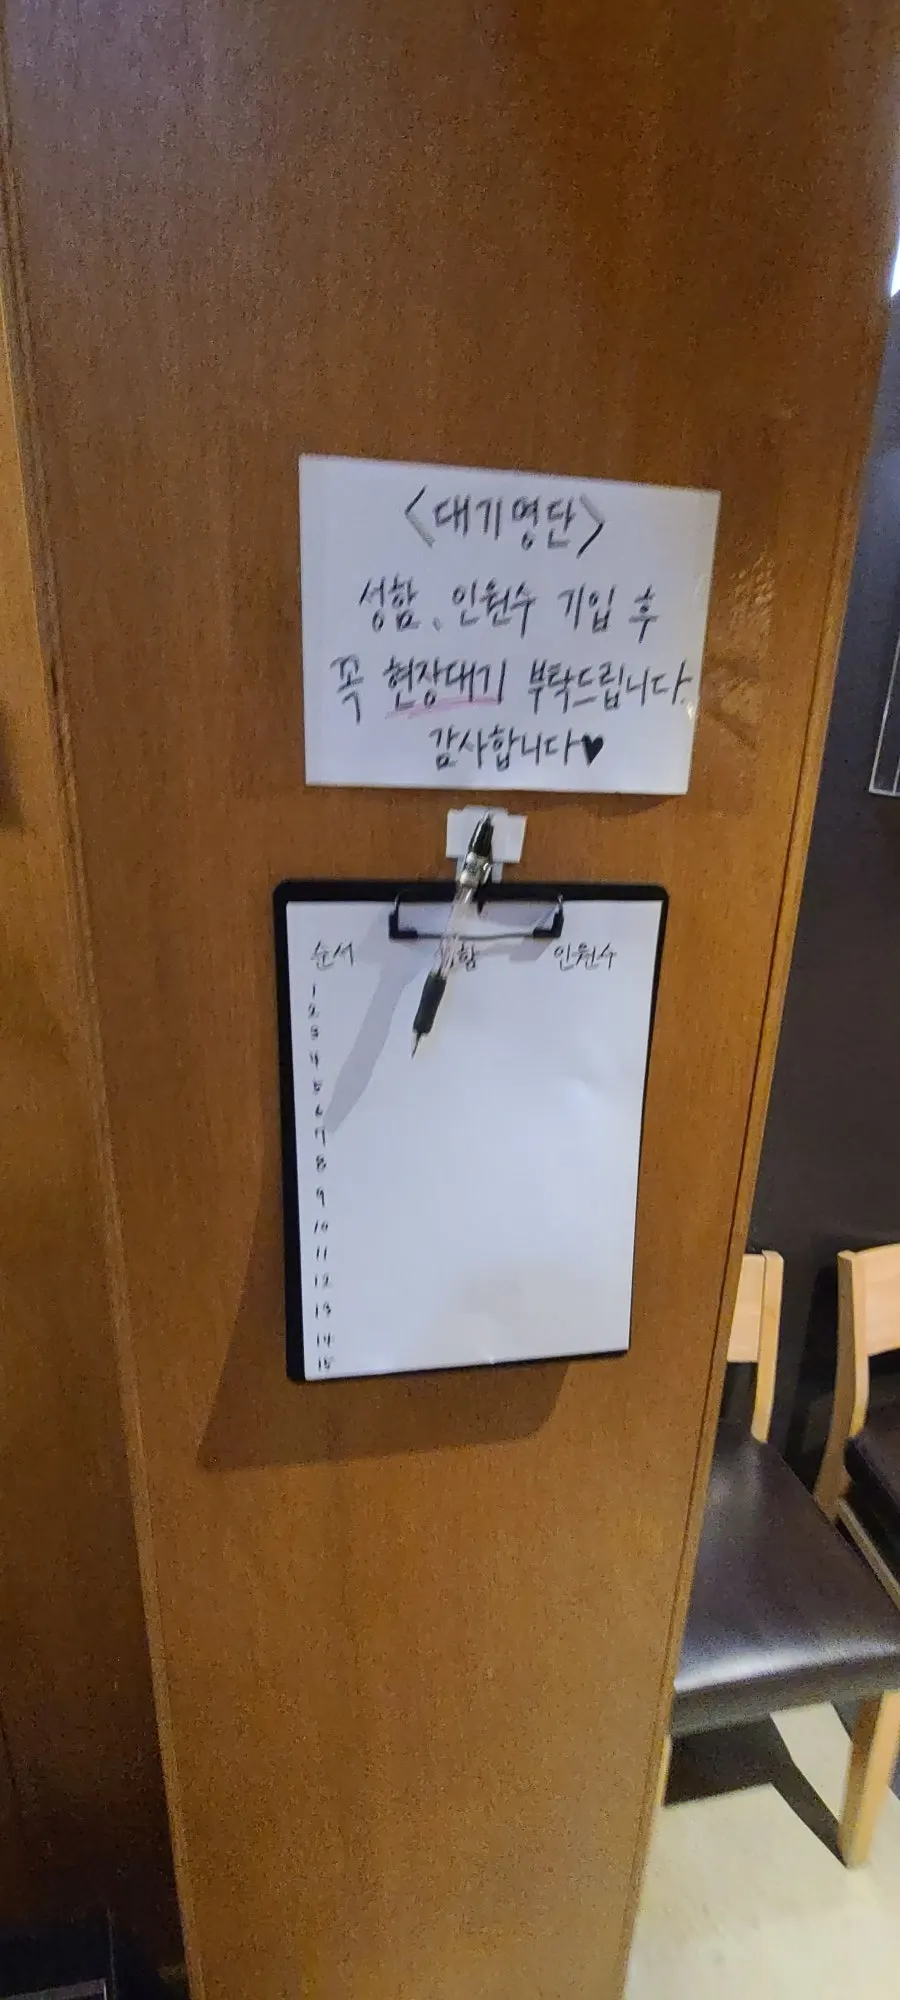 <대기명단>
성함、인원수 기입 후
꼭 현장대기 부탁드립니다.
감사합니다♥
순서 인원수
1
2
3
4
5
6
7
8
9
10
11
12
13
14
15